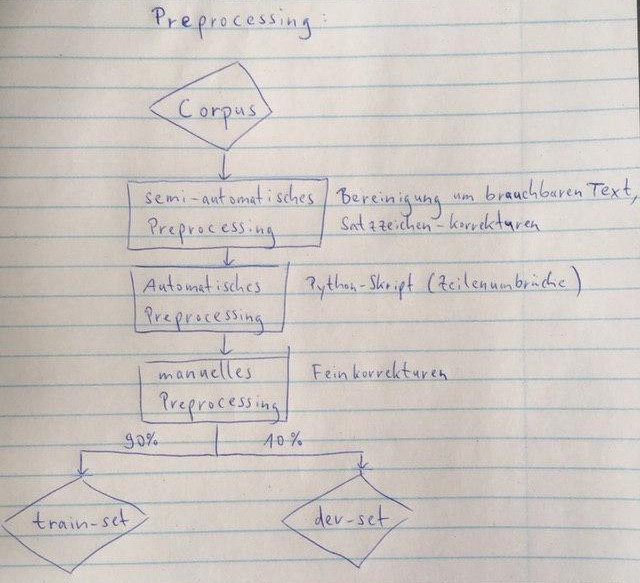 Preprocessing:
Corpus
semi-automatisches
Preprocessing
Bereinigung um brauchbaren Text,
Satzzeichen-korrekturen
Automatisches
Preprocessing
Python-Skript (Zeilenumbrüche)
manuelles
Preprocessing
Feinkorrekturen
90% 10%
train-set dev-set